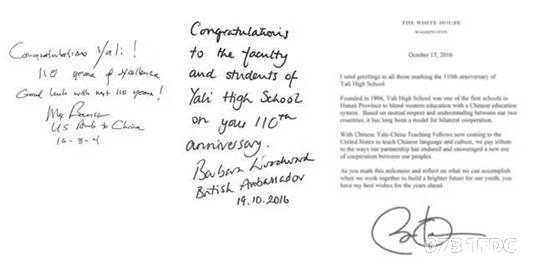 Congratulations Yali!
110 years of excellence
Good luck with next 110 years!
Max Baucus
US Amb to China
16-3-4
Congratulations
to the faculty
and students of
Yali High School
on your 110th
anniversary.
Barbara Woodward
British Ambassador
19.10.2016
THE WHITE HOUSE
WASHINGTON
October 17, 2016
I send greetings to all those marking the 110th anniversary of
Yali High School.
Founded in 1906, Yali High School was one of the first schools in
Hunan Province to blend western education with a Chinese education
system. Based on mutual respect and understanding between our two
countries, it has long been a model for bilateral cooperation.
With Chinese Yale-China Teaching Fellows now coming to the
United States to teach Chinese language and culture, we pay tribute
to the ways our partnership has endured and encouraged a new era
of cooperation between our peoples.
As you mark this milestone and reflect on what we can accomplish
when we work together to build a brighter future for our youth, you
have my best wishes for the years ahead.
0731FDC